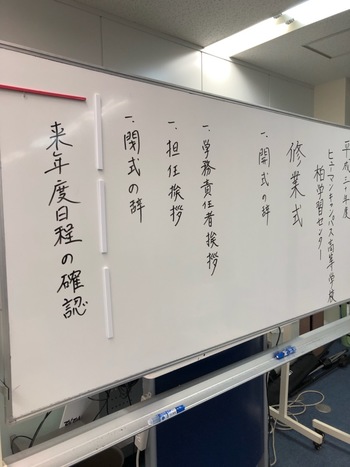 平成三十年度
ヒューマンキャンパス高等学校
柏学習センター
修業式
一、開式の辞
一、学務責任者挨拶
一、担任挨拶
一、閉式の辞
来年度日程の確認